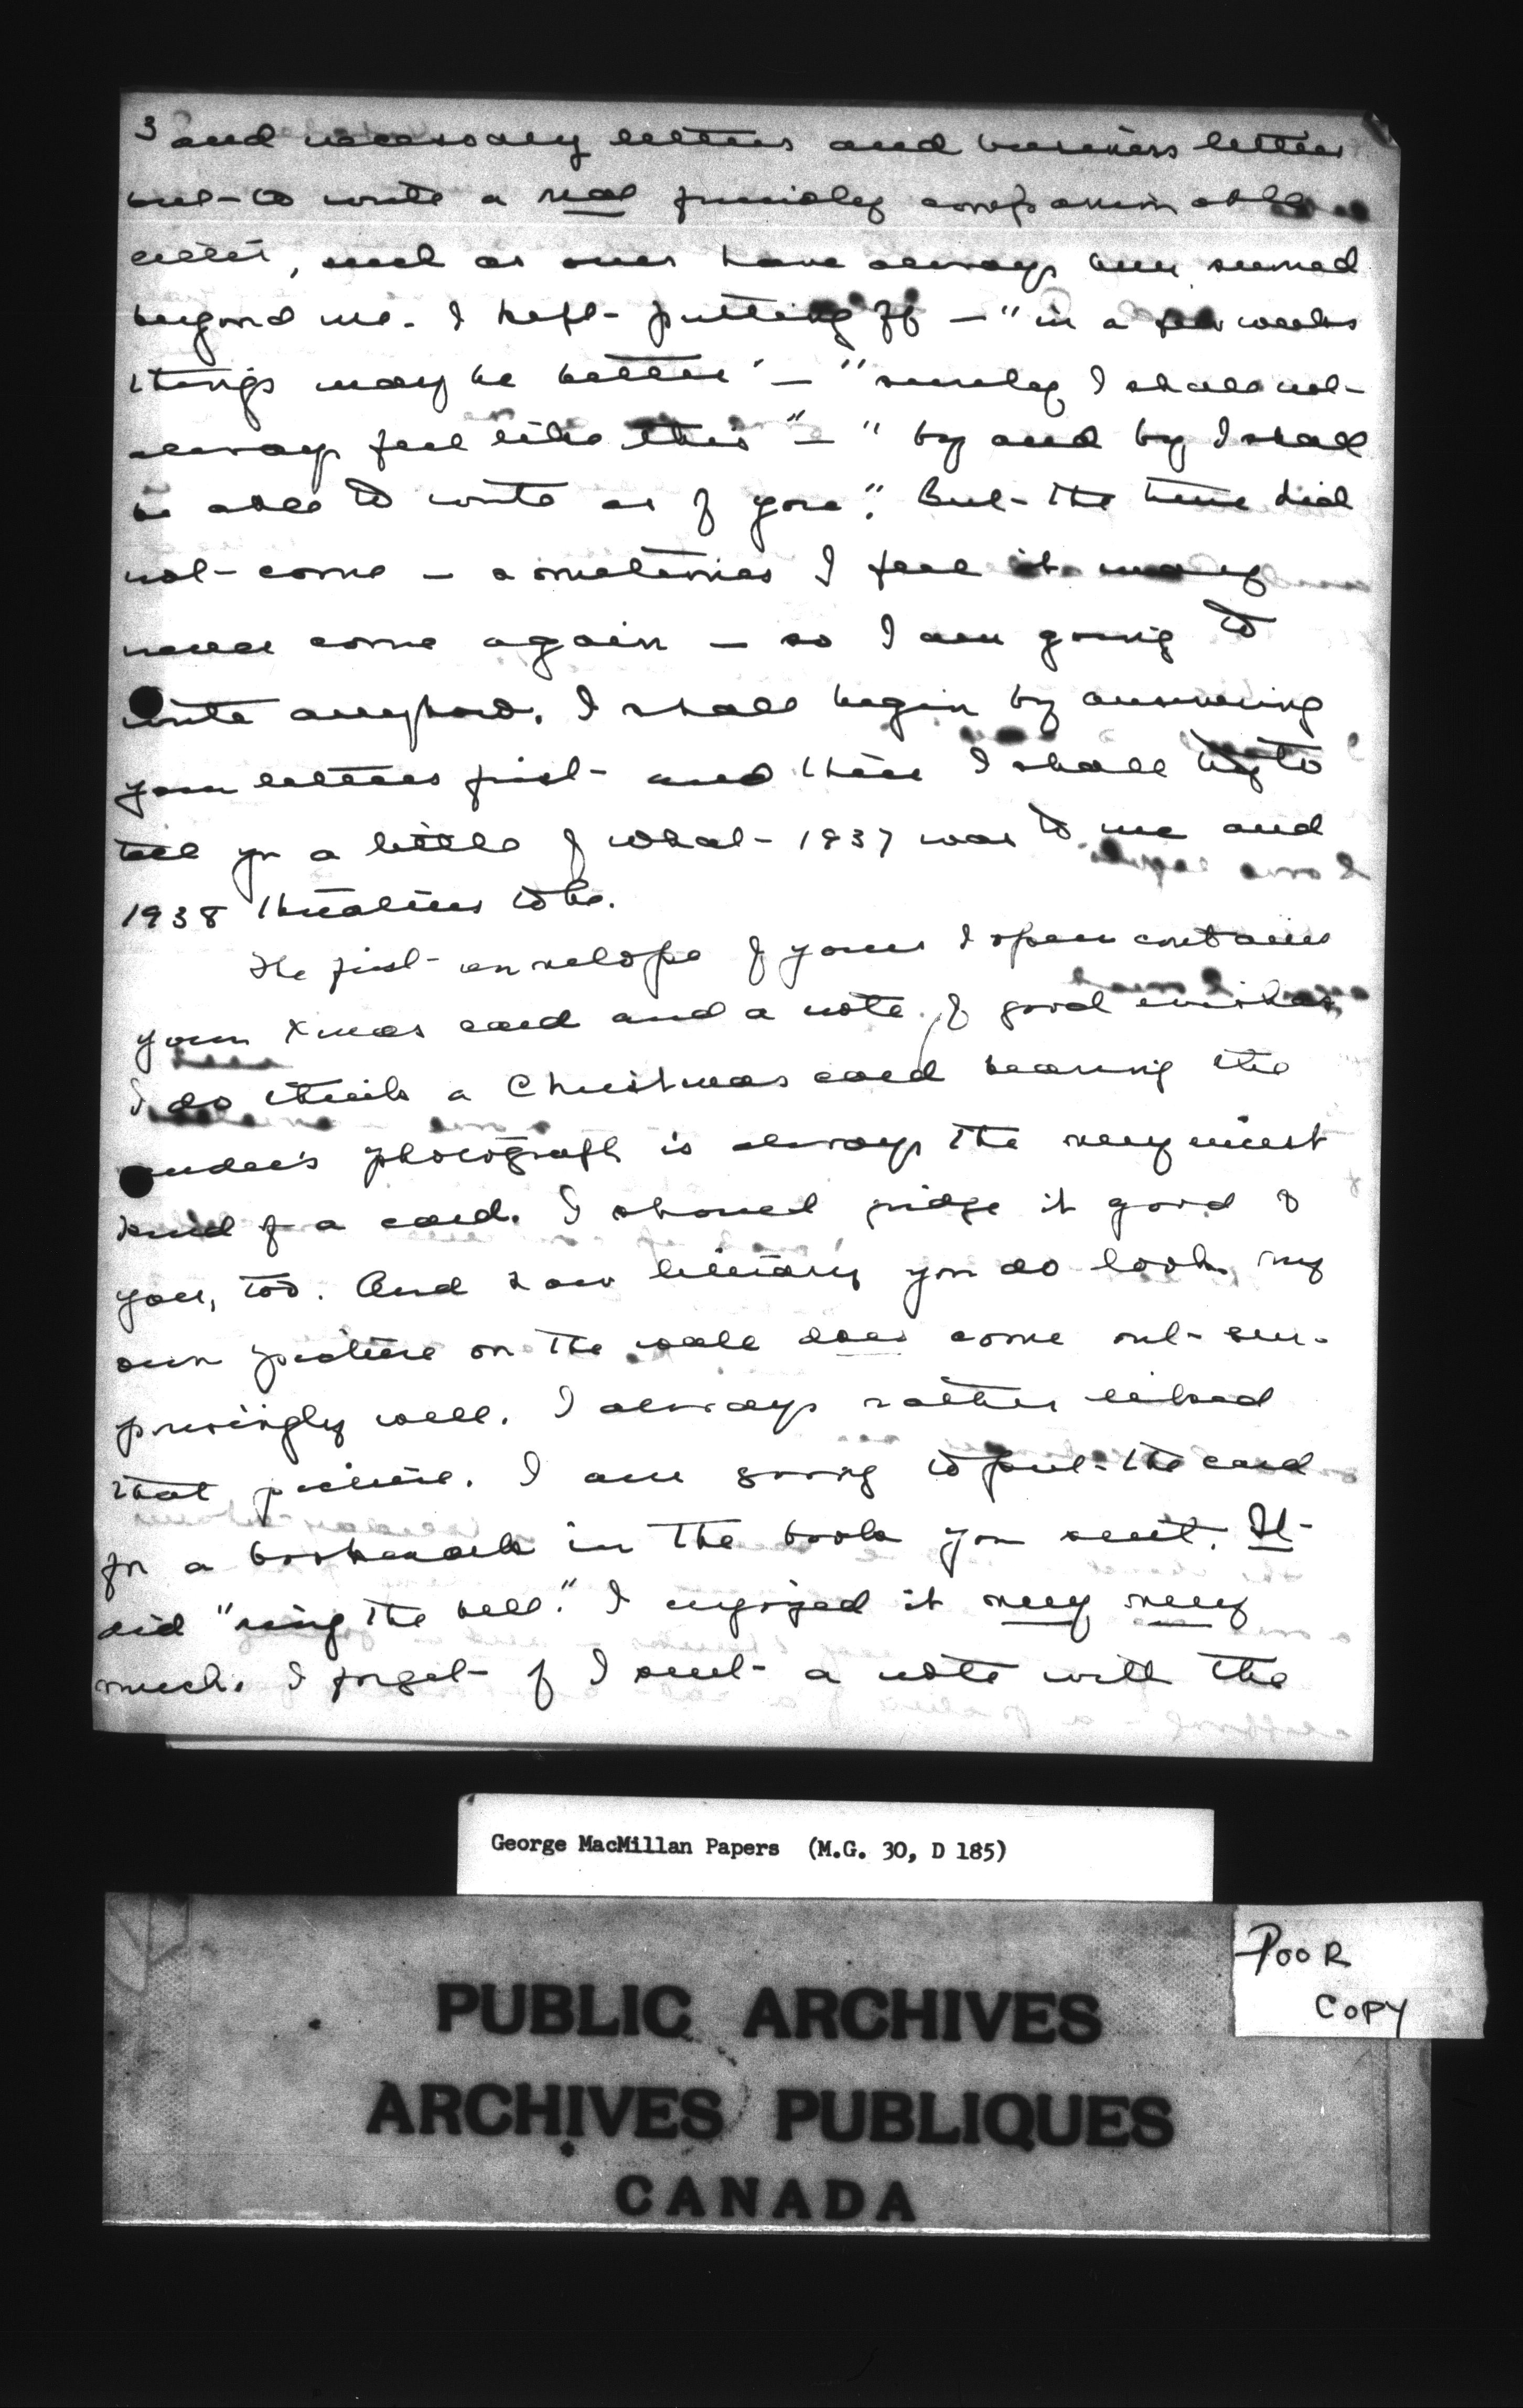 3 and necessary letters and business letters
but to write a real friendly companionable
letter, such as ours have always been seemed
beyond me. I kept putting off — "in a few weeks
things may be better" — "surely I shall not
always feel like this" — "by and by I shall
be able to write as of yore". But the time did
not come — sometimes I feel it may
never come again — so I am going to
write anyhow. I shall begin by answering
your letters first and then I shall try to
tell you a little of what 1937 was to me and
1938 threatens to be.
The first envelope of yours I open contains
your Xmas card and a note of good wishes.
I do think a Christmas card bearing the
sender's photograph is always the very nicest
kind of a card. I should judge it good of
you, too. And how literary you do look. My
own picture on the wall does come out sur-
prisingly well. I always rather liked
that picture. I am going to put the card
for a bookmark in the book you sent. It
did "ring the bell." I enjoyed it very very
much. I forget if I sent a note with the
George MacMillan Papers (M.G. 30, D 185)
POOR
COPY
PUBLIC ARCHIVES
ARCHIVES PUBLIQUES
CANADA